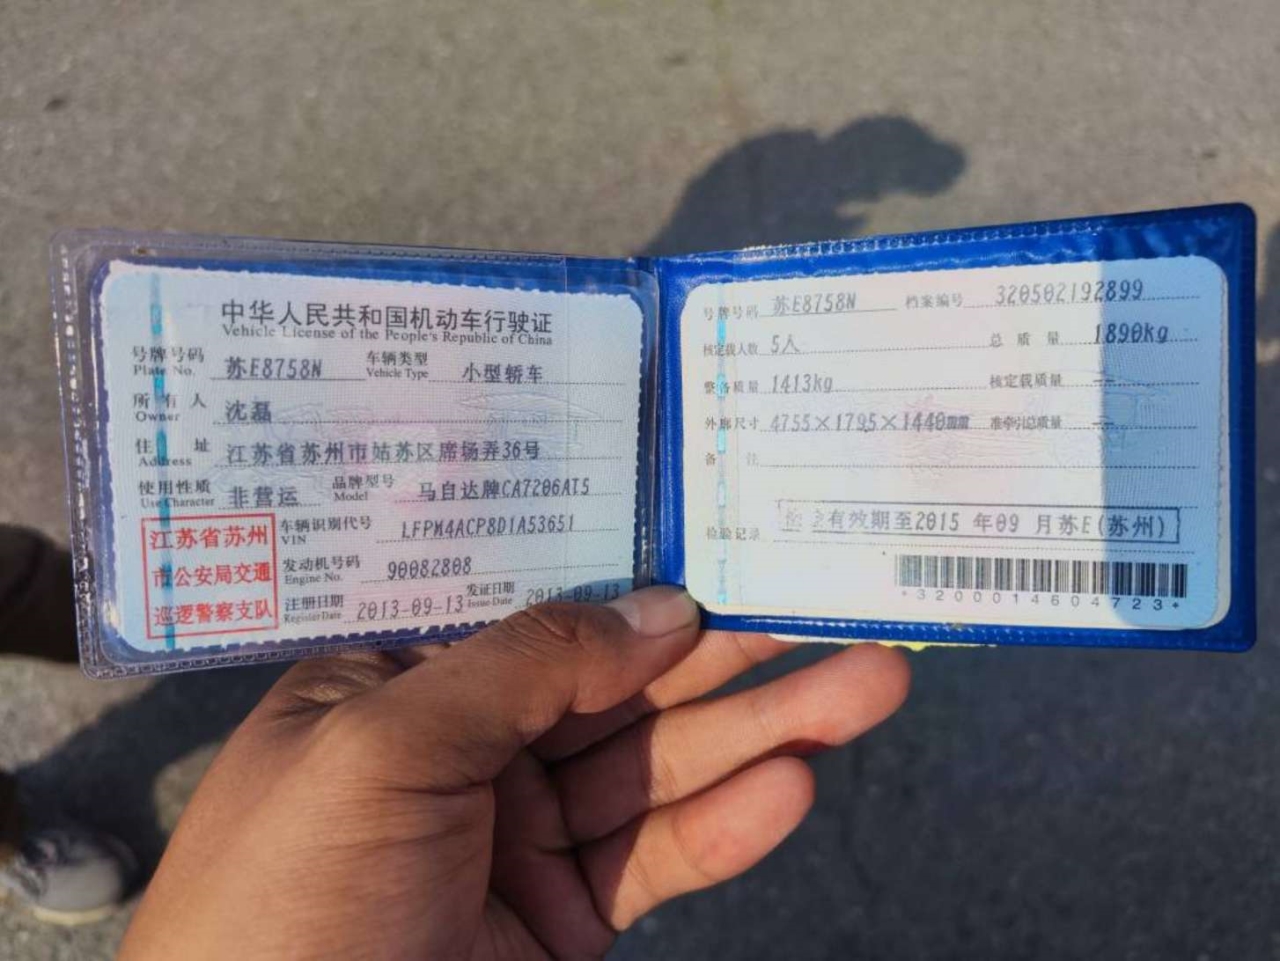 中华人民共和国机动车行驶证
Vehicle License of the People's Republic of China
号牌号码 苏E8758N 车辆类型 小型轿车
Plate No. Vehicle Type
所有人 沈磊
Owner
住址 江苏省苏州市姑苏区席场弄36号
Address
使用性质 非营运 品牌型号 马自达牌CA7206AT5
Use Character Model
江苏省苏州
市公安局交通
巡逻警察支队
车辆识别代号 LFPM4ACP8D1A53651
VIN
发动机号码 90082808
Engine No.
注册日期 2013-09-13 发证日期 2013-09-13
Register Date Issue Date
号牌号码 苏E8758N 档案编号 320502192899
核定载人数 5人 总质量 1890kg
整备质量 1413kg 核定载质量 --
外廓尺寸 4755×1795×1440mm 准牵引总质量 --
备注
检验记录 检验有效期至2015年09月苏E(苏州)
*3200014604723*